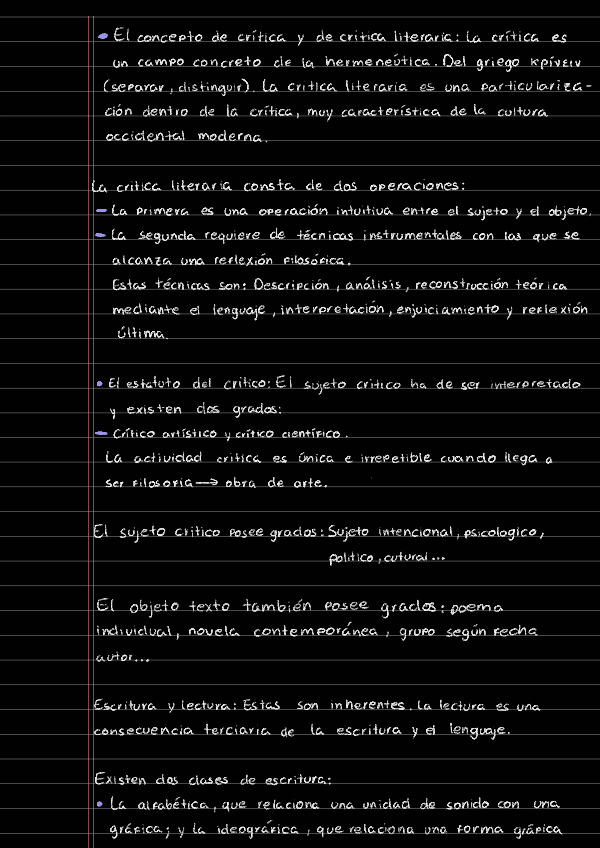 • El concepto de crítica y de crítica literaria: La crítica es
un campo concreto de la hermeneútica. Del griego κρίνειν
(separar, distinguir). La crítica literaria es una particulariza-
ción dentro de la crítica, muy característica de la cultura
occidental moderna.
La crítica literaria consta de dos operaciones:
- La primera es una operación intuitiva entre el sujeto y el objeto.
- La segunda requiere de técnicas instrumentales con las que se
alcanza una reflexión filosófica.
Estas técnicas son: Descripción, análisis, reconstrucción teórica
mediante el lenguaje, interpretación, enjuiciamiento y reflexión
última.
• El estatuto del crítico: El sujeto crítico ha de ser interpretado
y existen dos grados:
- Crítico artístico y crítico científico.
La actividad crítica es única e irrepetible cuando llega a
ser filosofía → obra de arte.
El sujeto crítico posee grados: Sujeto intencional, psicologico,
politico, cutural...
El objeto texto también posee grados: poema
individual, novela contemporánea, grupo según fecha
autor...
Escritura y lectura: Estas son inherentes. La lectura es una
consecuencia terciaria de la escritura y el lenguaje.
Existen dos clases de escritura:
• La alfabética, que relaciona una unidad de sonido con una
gráfica; y la ideográfica, que relaciona una forma gráfica